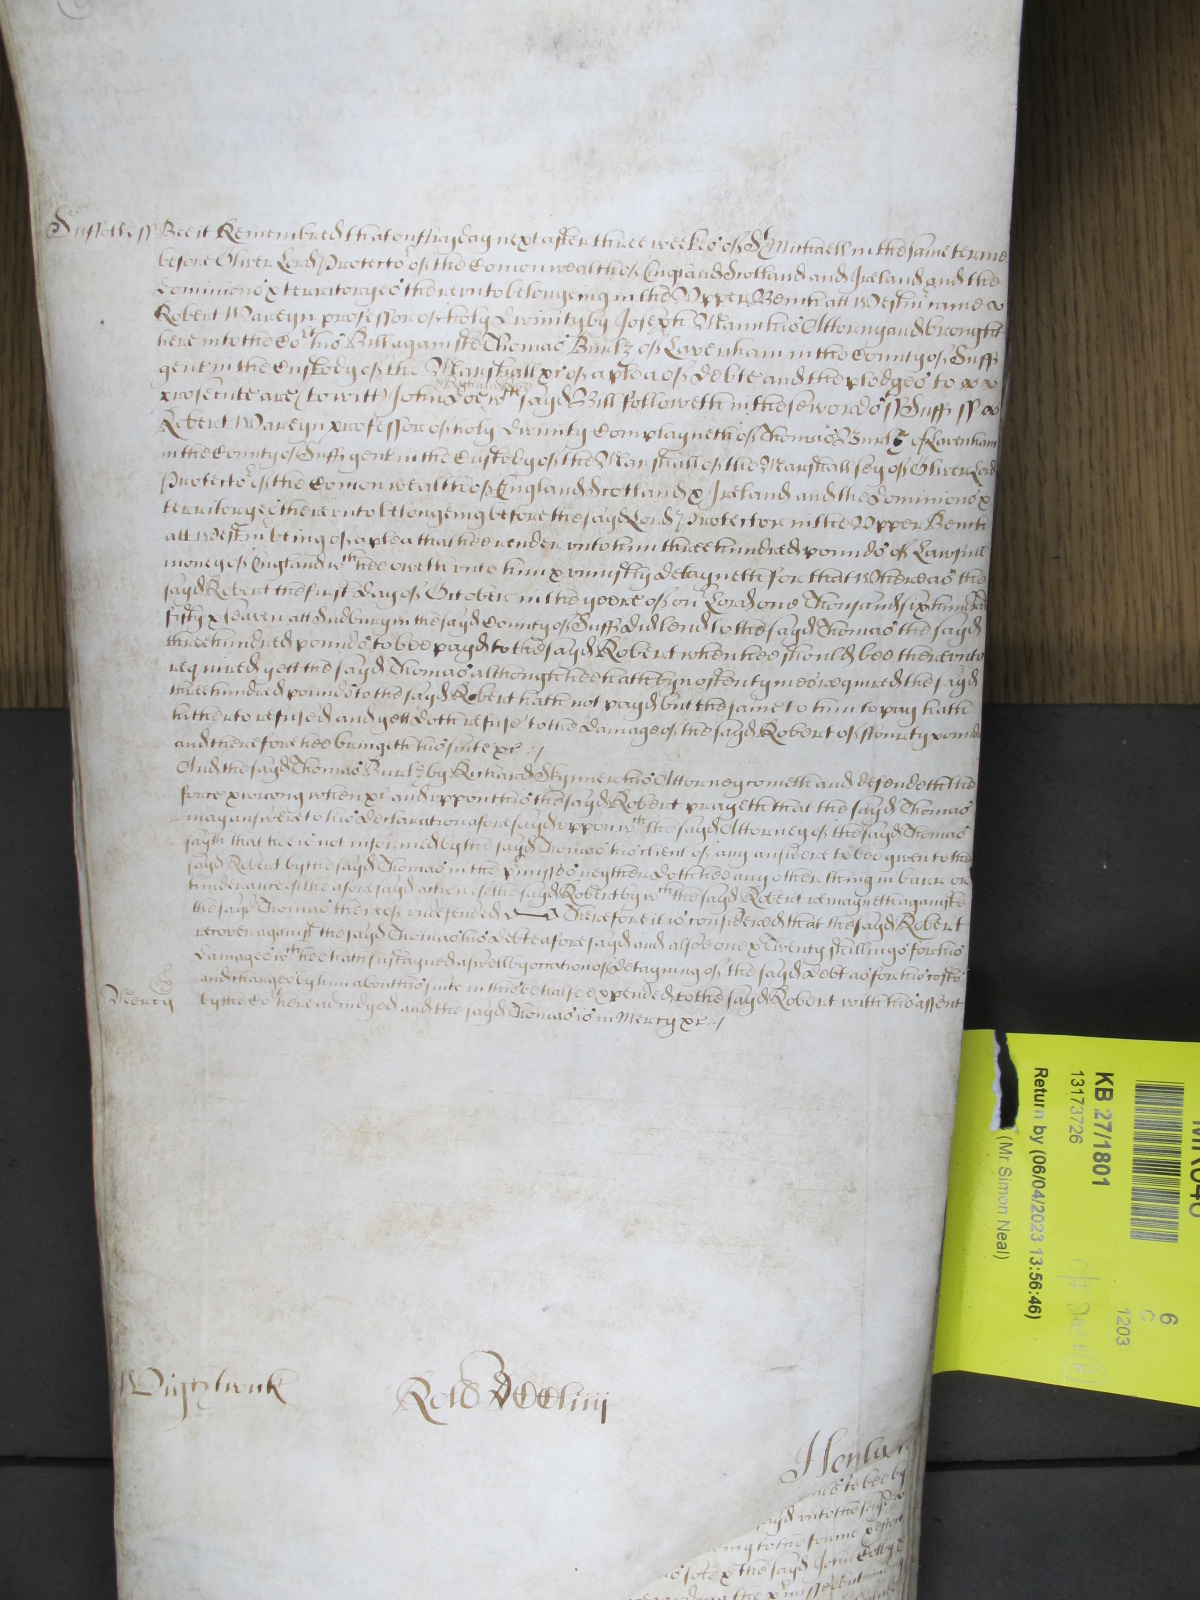 Suffolke ss Bee it Remembred that on fryday next after three weekes of St Michaell in the same terme
before Oliver Lord Protector of the Comonwealth of England Scotland and Ireland and the
Dominions & territoryes thereunto belongeing in the Upper Bench att Westmr came
Robert Wareyn professor of holy Divinity by Joseph Mann his Attorny and brought
here into the Cort his Bill againste Thomas Burlz of Lavenham in the County of Suff
gent in the Custody of the Marshall &c of a plea of debte and the pledges to
prosecute are (to witt) John Doe wch sayd Bill followeth in these words ss Suff ss
Robert Wareyn professor of holy Divinity Complayneth of Thomas Burlz of Lavenham
in the County of Suff gent in the Custody of the Marshall of the Marshallsey of Oliver Lord
Protector of the Comonwealth of England Scotland & Ireland and the Dominions &
territoryes thereunto belongeing before the sayd Lord Protector in the Upper Bench
att Westmr being of a plea that hee render unto him three hundred pounds of Lawfull
money of England wch hee oweth unto him & uniustly detayneth for that Whereas the
sayd Robert the first day of October in the yeere of our Lord one Thousand six hundred
fifty & seaven att Sudbury in the sayd County of Suff did lend to the sayd Thomas the sayd
three hundred pounds to bee payd to the sayd Robert when hee should bee thereunto
required yett the sayd Thomas although hee hath byn oftentymes required the sayd
three hundred pounds to the sayd Robert hath not payd but the same to him to pay hath
hitherto refused and yett doth refuse to the damage of the sayd Robert of fourty pounds
and therefore hee bringeth his suite &c
And the sayd Thomas Burlz by Richard Skynner his Attorney cometh and defendeth the
force & wrong when &c and uppon this the sayd Robert prayeth that the sayd Thomas
may answere to his declaration aforesayd uppon wch the sayd Attorney of the sayd Thomas
sayth that hee is not informed by the sayd Thomas his client of any answere to bee given to the
sayd Robert by the sayd Thomas in the pmisses neyther doth hee any other thing in barr or
hinderance of the aforesayd action of the sayd Robert by wch the sayd Robert remayneth against
the sayd Thomas thereof undefended Therefore it is considered that the sayd Robert
recover against the sayd Thomas his debte aforesayd and alsoe one & Twenty shillings for his
damages wch hee hath sustayned aswell by occation of detayning of the sayd debt as for his costs
and charges by him about his suite in this behalfe expended to the sayd Robert with his assent
Mercy by the Cort here adiudged and the sayd Thomas is in Mercy &c
Wightwick Rolo DCCliiii
to bee by
sayd unto the sayd
to the forme & effect
the sayd John
KB 27/1801
13173726
Return by (06/04/2023 13:56:46)
(Mr Simon Neal)
6
C
1203